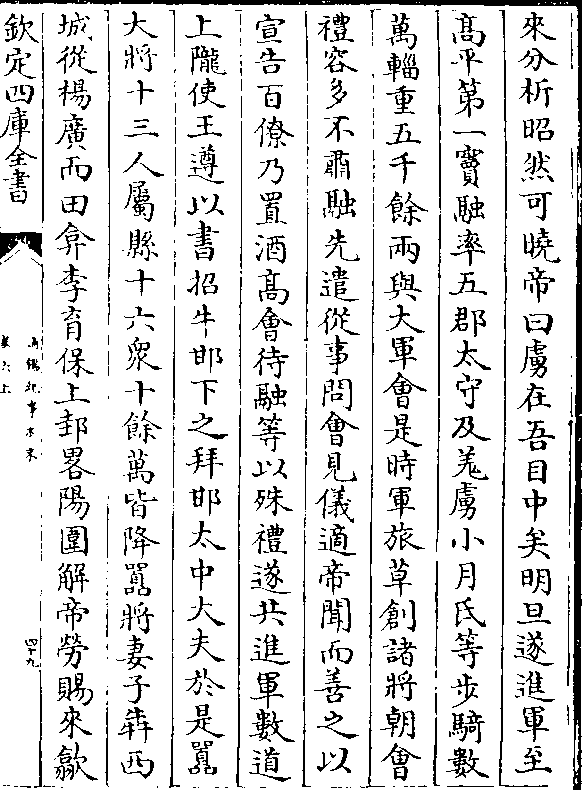 來分析昭然可曉帝曰虜在吾目中矣明旦遂進軍至
髙平第一竇融率五郡太守及羌虜小月氏等步騎數
萬輜重五千餘兩與大軍㑹是時軍旅草創諸將朝㑹
禮容多不肅融先遣從事問㑹見儀適帝聞而善之以
宣告百僚乃置酒髙㑹待融等以殊禮遂共進軍數道
上隴使王遵以書招牛邯下之拜邯太中大夫於是囂
大將十三人屬縣十六衆十餘萬皆降囂將妻子犇西
城從楊廣而田弇李育保上邽畧陽圍解帝勞賜來歙
欽定四庫全書
四十九